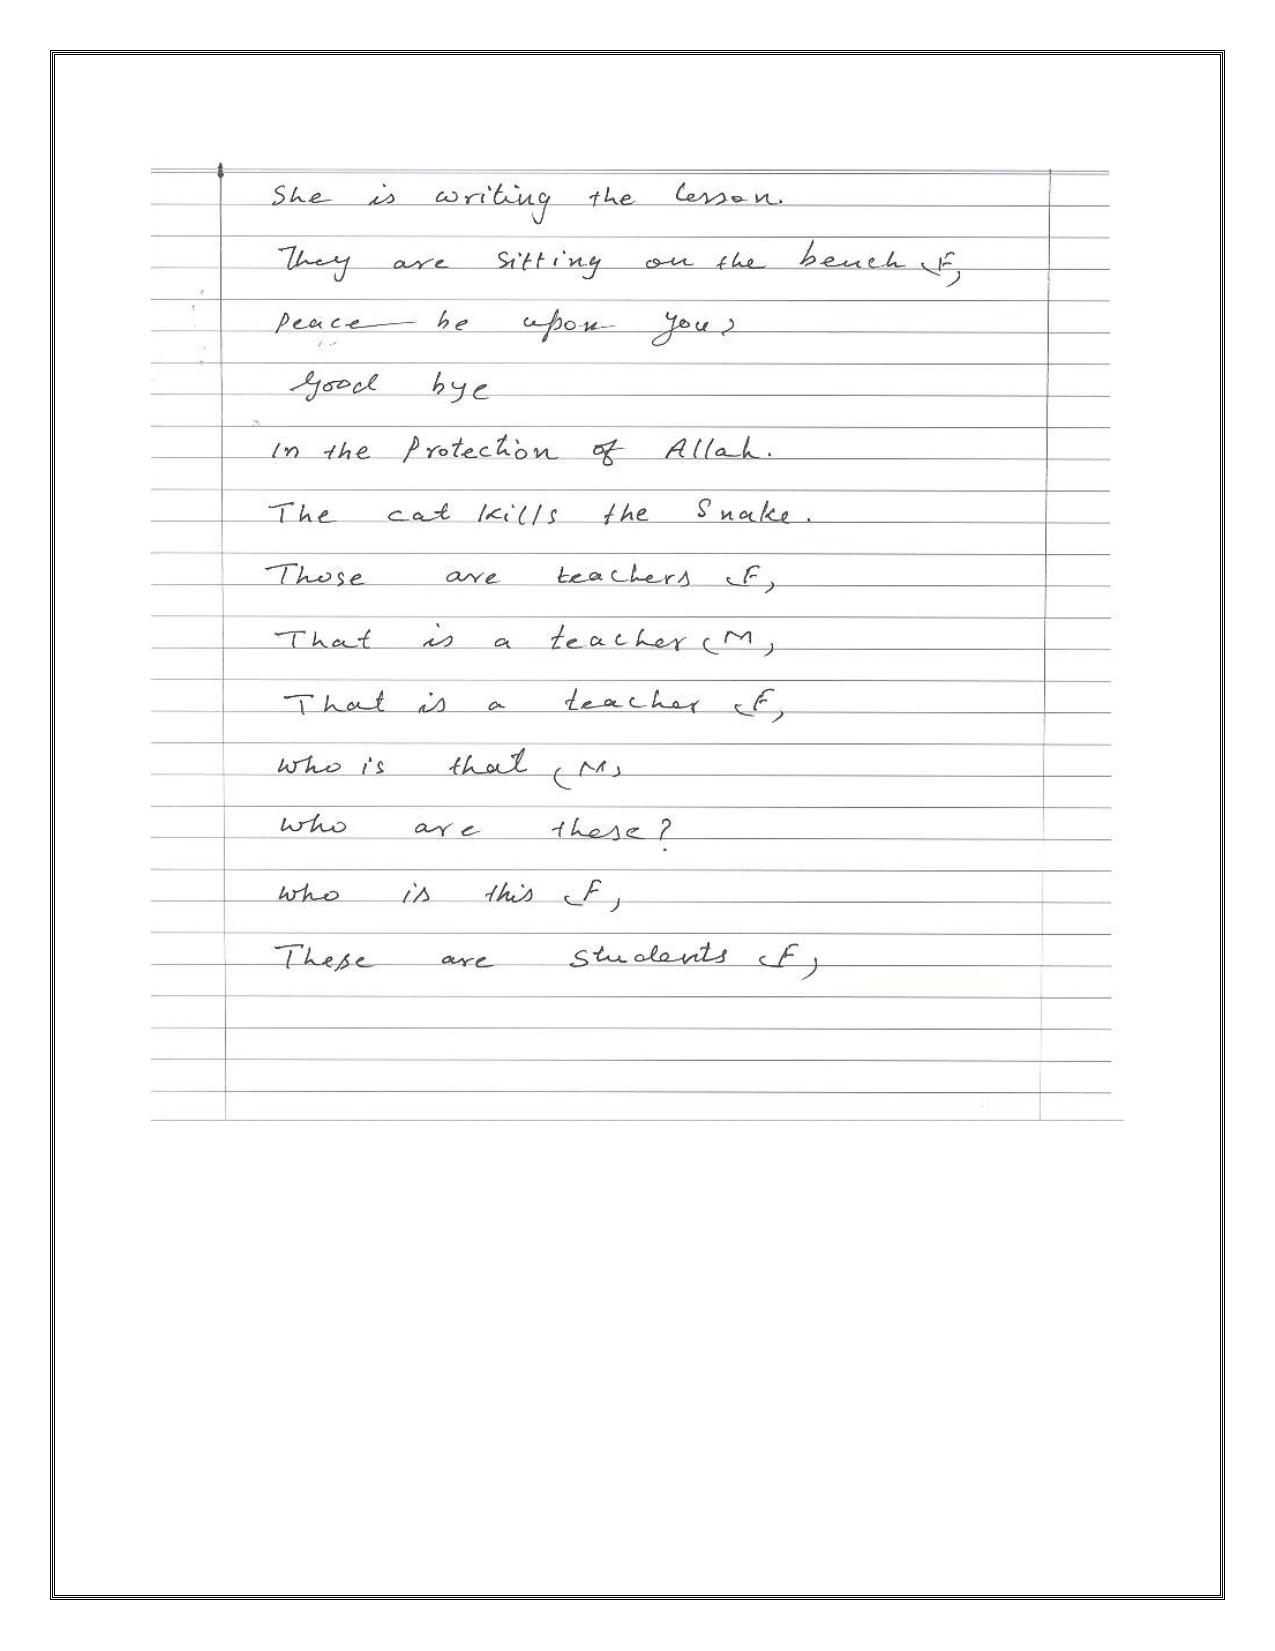 She is writing the lesson.
They are sitting on the bench (F)
Peace be upon you)
Good bye
In the Protection of Allah.
The cat kills the Snake.
Those are teachers (F)
That is a teacher (M)
That is a teacher (F)
Who is that (M)
Who are these?
Who is this (F)
These are students (F)